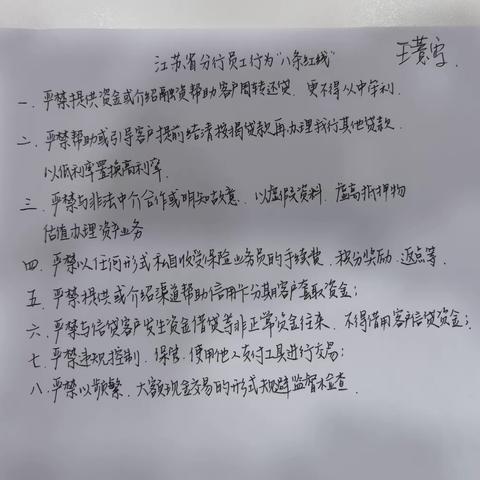 江苏省分行员工行为"八条红线"
王薏寧
一.严禁提供资金或介绍融资帮助客户周转还贷.更不得从中牟利.
二.严禁帮助或引导客户提前结清按揭贷款再办理我行其他贷款.
以低利率置换高利率.
三.严禁与非法中介合作或明知故意.以虚假资料.虚高抵押物
估值办理资产业务
四.严禁以任何形式私自收受保险业务员的手续费.积分奖励.返点等.
五.严禁提供或介绍渠道帮助信用卡分期客户套取资金;
六.严禁与信贷客户发生资金借贷等非正常资金往来.不得借用客户信贷资金;
七.严禁违规控制.保管.使用他人支付工具进行交易;
八.严禁以频繁.大额现金交易的形式规避监督检查.